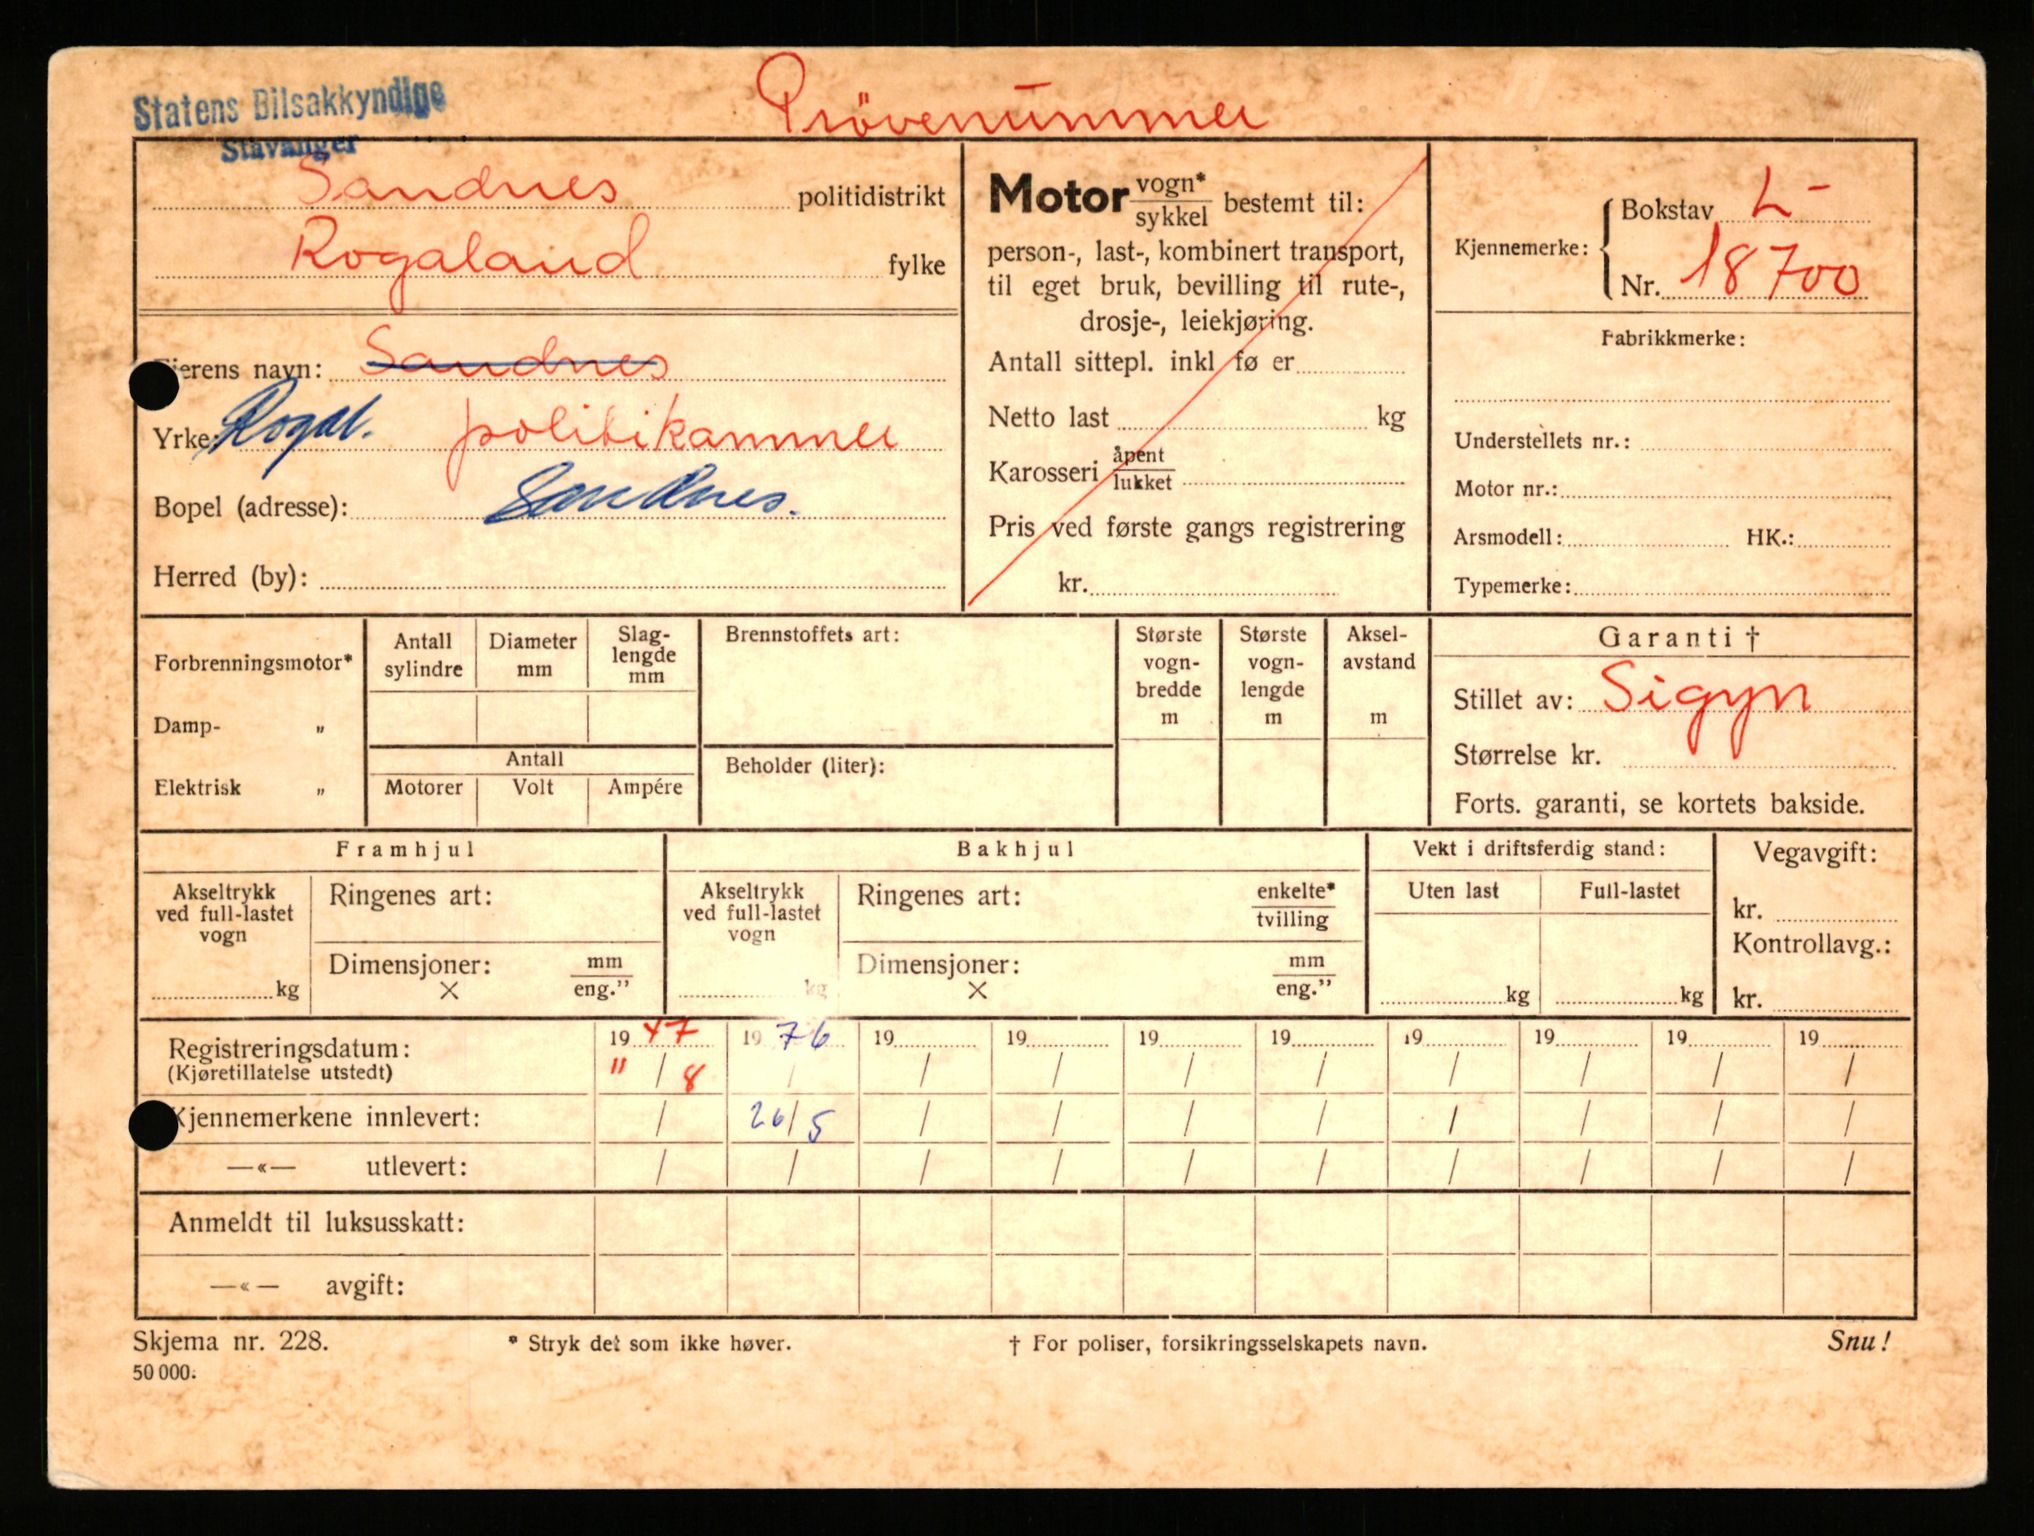 Statens Bilsakkyndige
Stavanger
Prövenummer
Sandnes politidistrikt
Rogaland fylke
Eierens navn: Sandnes
Yrke: Rogal. politikammer
Bopel (adresse): Sandnes.
Herred (by):
Motor vogn* sykkel bestemt til:
person-, last-, kombinert transport,
til eget bruk, bevilling til rute-,
drosje-, leiekjøring.
Antall sittepl. inkl fø er
Netto last kg
Karosseri åpent lukket
Pris ved første gangs registrering
kr.
Kjennemerke: Bokstav L-
Nr. 18700
Fabrikkmerke:
Understellets nr.:
Motor nr.:
Arsmodell: HK.:
Typemerke:
Forbrenningsmotor*
Damp- „
Elektrisk „
Antall sylindre
Diameter mm
Slag-lengde mm
Antall
Motorer Volt Ampére
Brennstoffets art:
Beholder (liter):
Største vogn-bredde m
Største vogn-lengde m
Aksel-avstand m
Garanti †
Stillet av: Sigyn
Størrelse kr.
Forts. garanti, se kortets bakside.
Framhjul
Akseltrykk ved full-lastet vogn
kg
Ringenes art:
Dimensjoner: mm
× eng.”
Bakhjul
Akseltrykk ved full-lastet vogn
kg
Ringenes art: enkelte* tvilling
Dimensjoner: mm
× eng.”
Vekt i driftsferdig stand:
Uten last Full-lastet
kg kg
Vegavgift:
kr.
Kontrollavg.:
kr.
Registreringsdatum: 1947 1976 19 19 19 19 19 19 19 19
(Kjøretillatelse utstedt) " / 8 / / / / / / / / /
Kjennemerkene innlevert: / 26/5 / / / / / / / /
—«— utlevert: / / / / / / / / / /
Anmeldt til luksusskatt:
—«— avgift:
Skjema nr. 228. * Stryk det som ikke høver. † For poliser, forsikringsselskapets navn. Snu!
50 000.